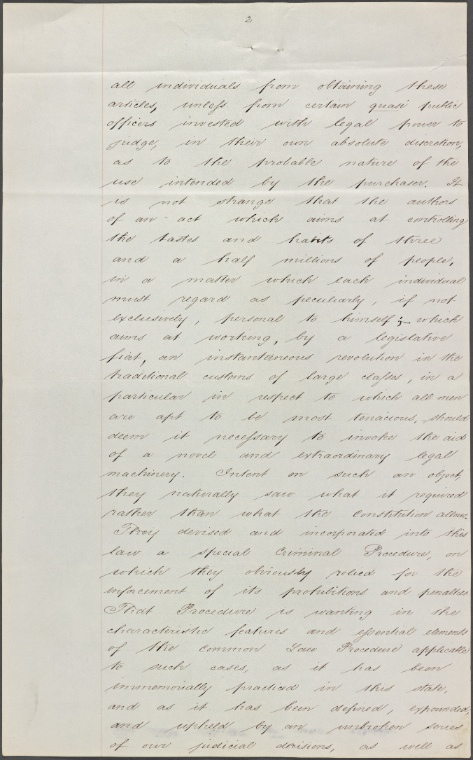 2
all individuals from obtaining these
articles, unless from certain quasi public
officers invested with legal power to
judge, in their own absolute discretion,
as to the probable nature of the
use intended by the purchaser. It
is not strange that the authors
of an act which aims at controlling
the tastes and habits of three
and a half millions of people,
in a matter which each individual
must regard as peculiarly, if not
exclusively, personal to himself; which
aims at working, by a legislative
fiat, an instantaneous revolution in the
traditional customs of large classes, in a
particular in respect to which all men
are apt to be most tenacious, should
deem it necessary to invoke the aid
of a novel and extraordinary legal
machinery. Intent on such an object,
they naturally saw what it required
rather than what the Constitution allows.
They devised and incorporated into this
law a special Criminal Procedure, on
which they obviously relied for the
enforcement of its prohibitions and penalties.
That Procedure is wanting in the
characteristic features and essential elements
of the Common Law Procedure applicable
to such cases, as it has been
immemorially practiced in this state,
and as it has been defined, expounded,
and upheld by an unbroken series
of our judicial decisions, as well as